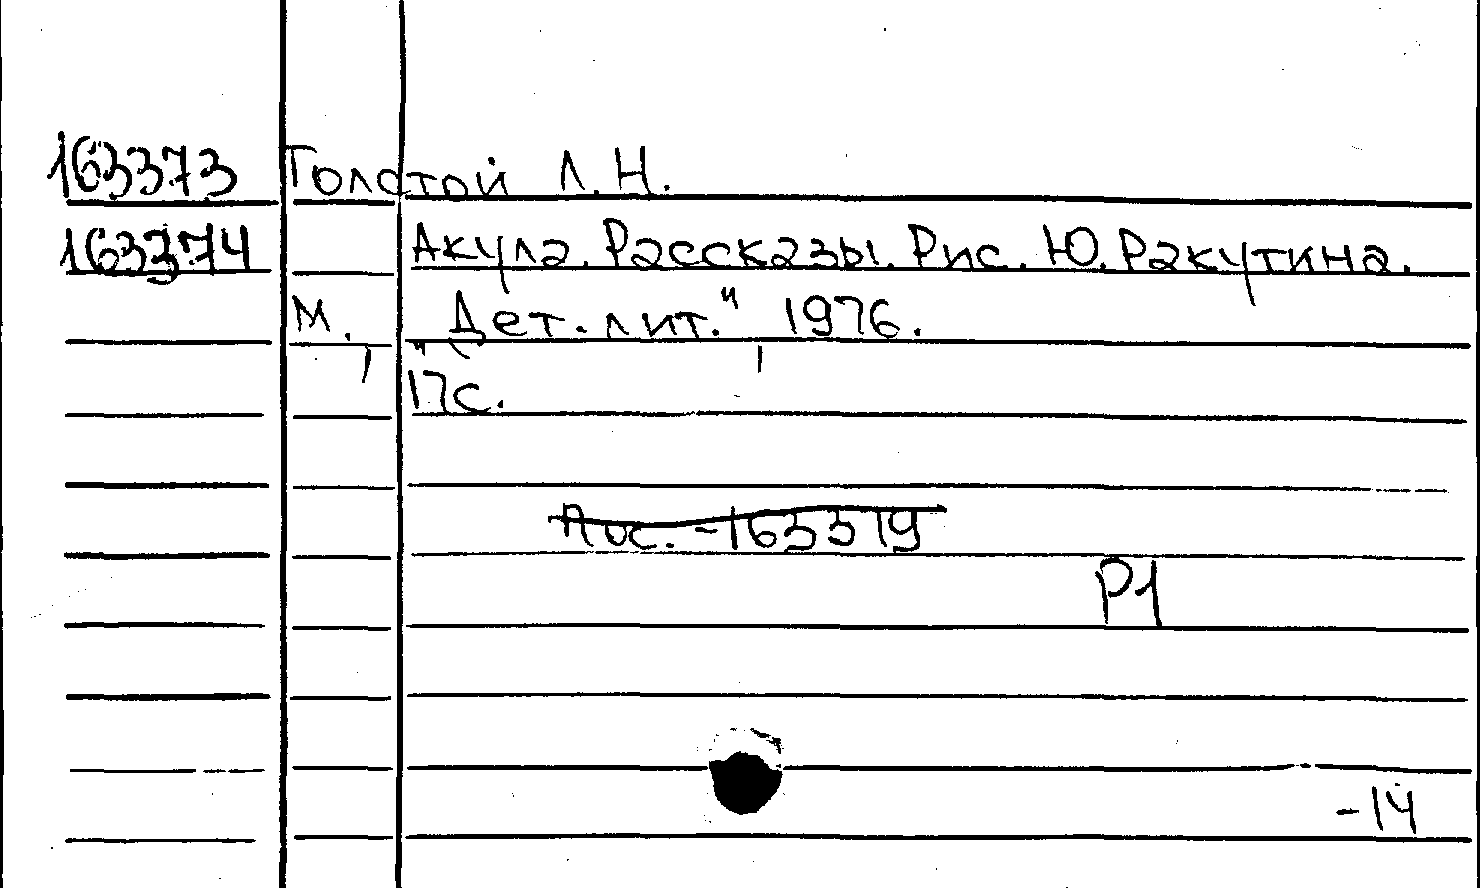 163373 Толстой Л.Н.
163374 Акула. Рассказы. Рис. Ю. Ракутина.
М., "Дет. лит.", 1976.
17с.
Пос. - 163379
Р1
-14